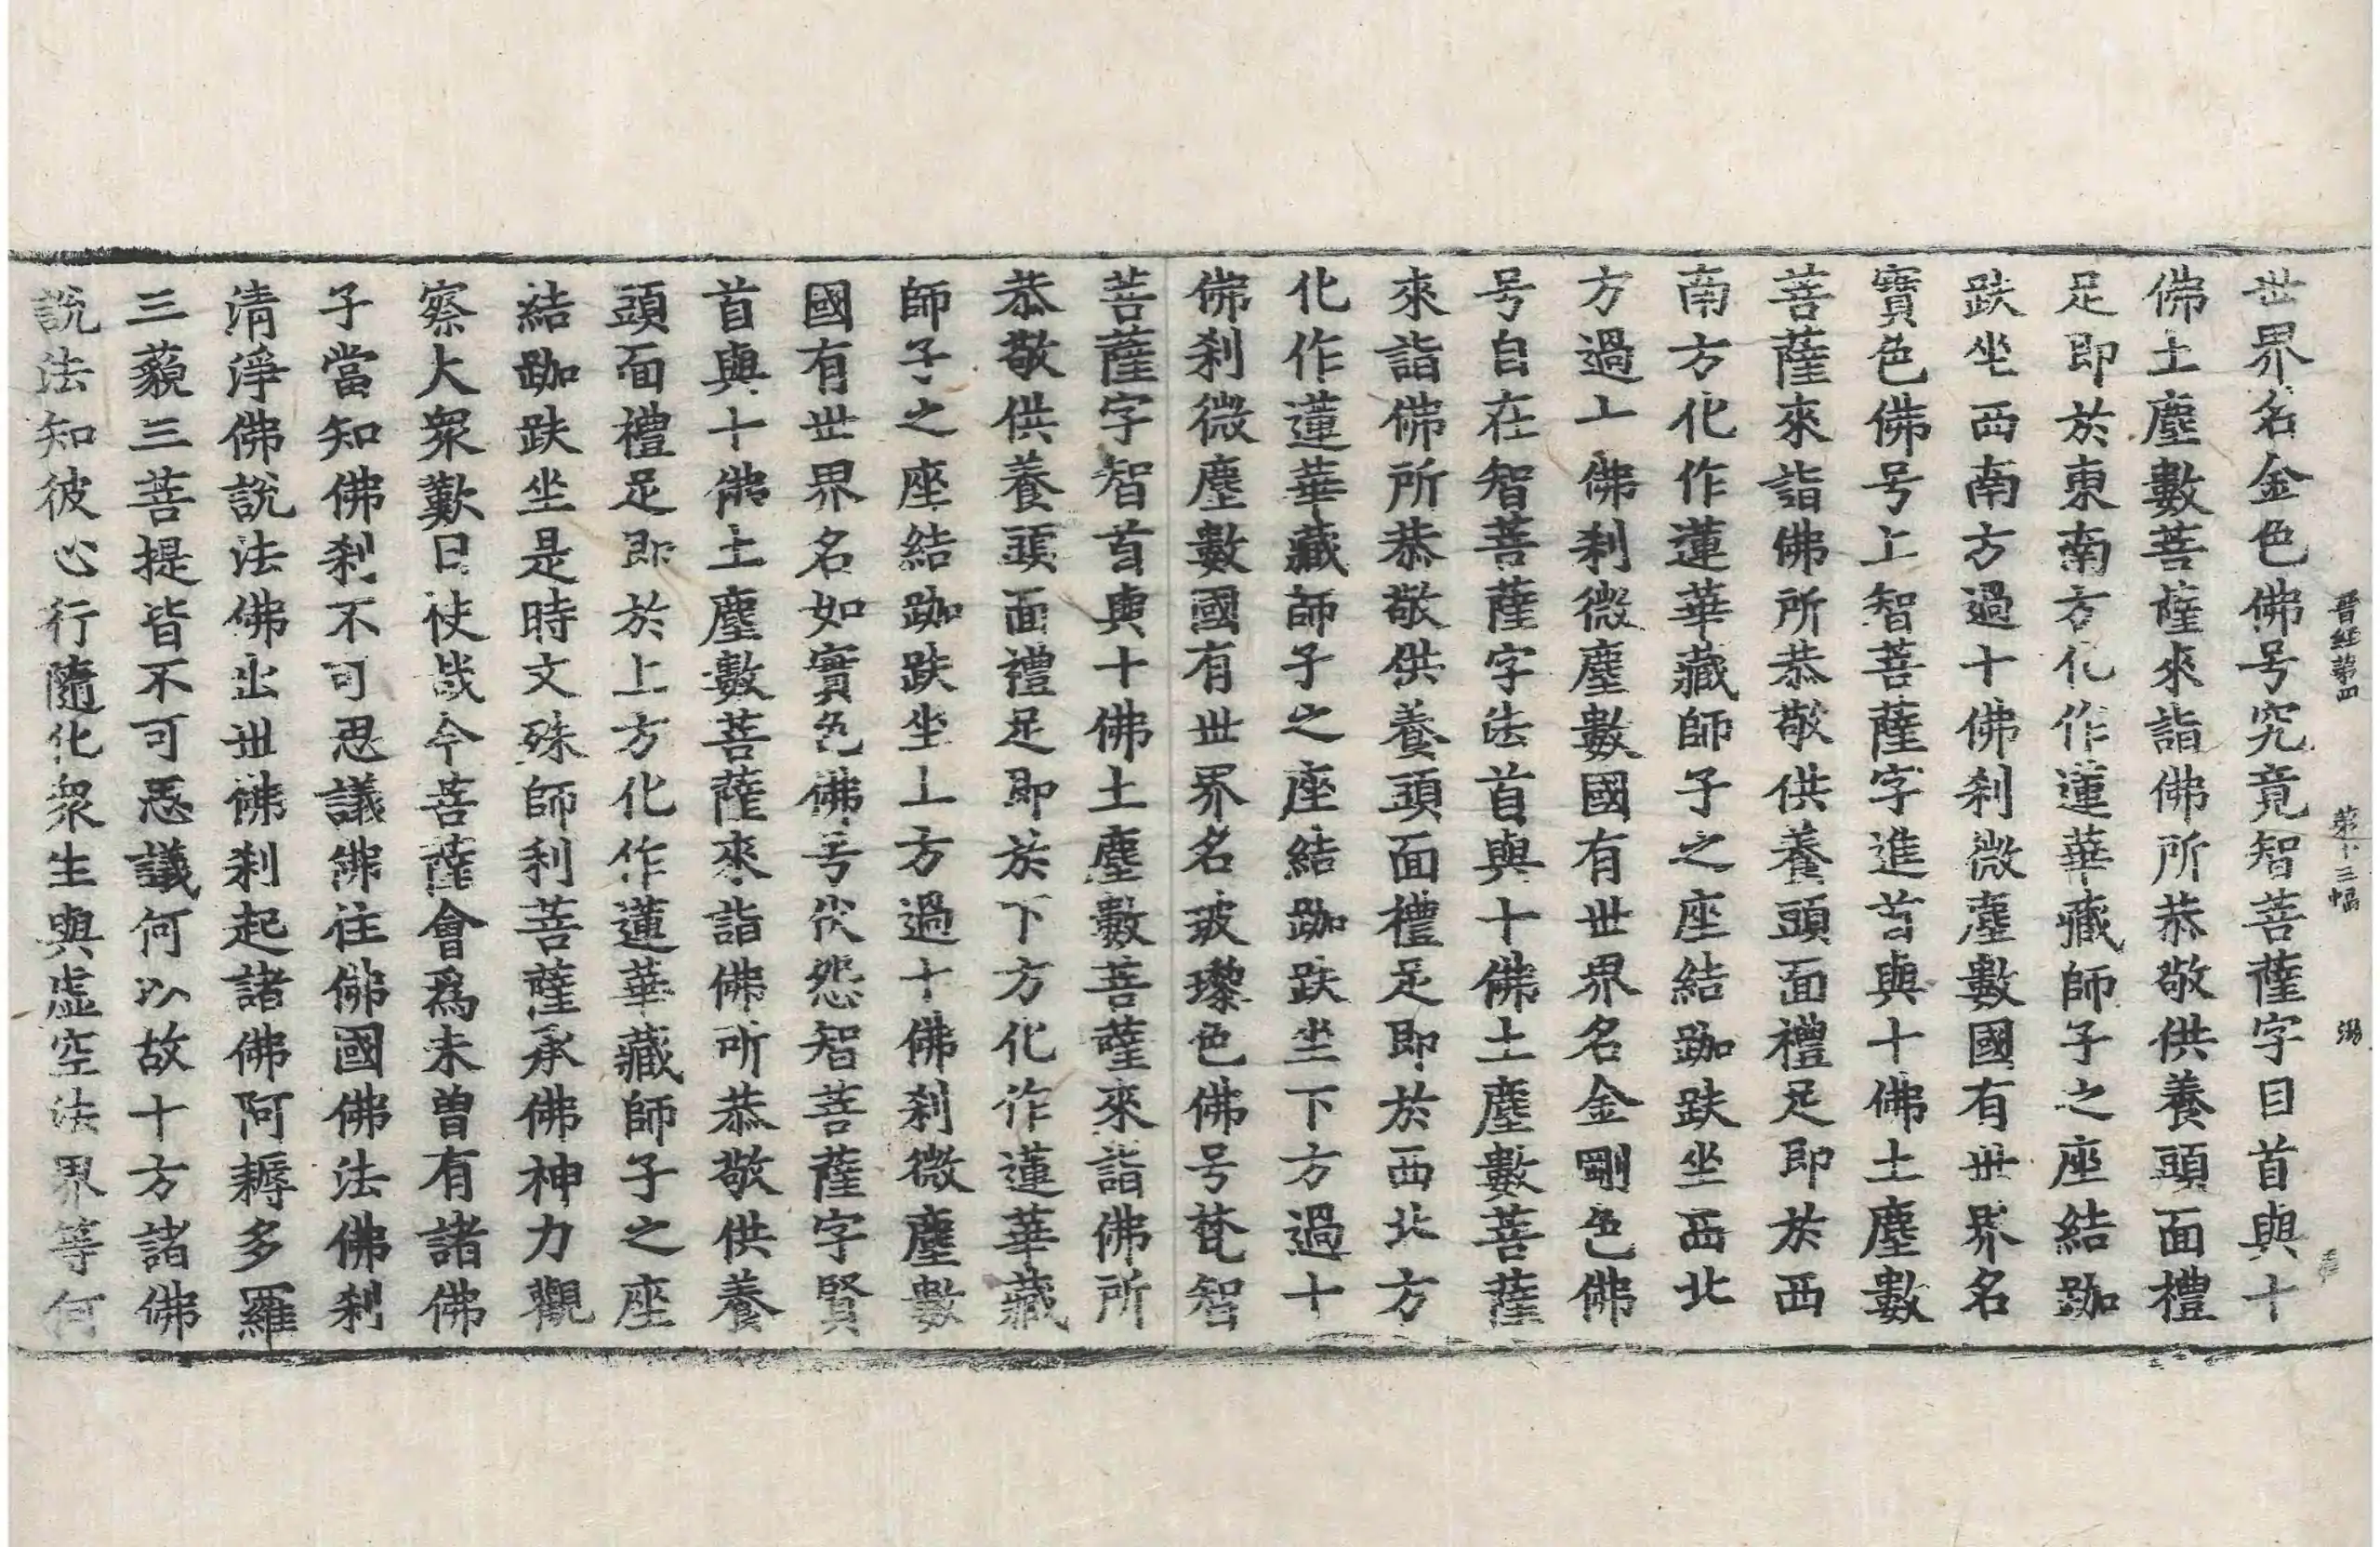 晋經第四　第十三幅　湯
世界名金色佛号究竟智菩薩字目首與十
佛土塵數菩薩來詣佛所恭敬供養頭面禮
足即於東南方化作蓮華藏師子之座結跏
趺坐西南方過十佛刹微塵數國有世界名
寶色佛号上智菩薩字進首與十佛土塵數
菩薩來詣佛所恭敬供養頭面禮足即於西
南方化作蓮華藏師子之座結跏趺坐西北
方過十佛刹微塵數國有世界名金剛色佛
号自在智菩薩字法首與十佛土塵數菩薩
來詣佛所恭敬供養頭面禮足即於西北方
化作蓮華藏師子之座結跏趺坐下方過十
佛刹微塵數國有世界名玻瓈色佛号梵智
菩薩字智首與十佛土塵數菩薩來詣佛所
恭敬供養頭面禮足即於下方化作蓮華藏
師子之座結跏趺坐上方過十佛刹微塵數
國有世界名如實色佛号伏怨智菩薩字賢
首與十佛土塵數菩薩來詣佛所恭敬供養
頭面禮足即於上方化作蓮華藏師子之座
結跏趺坐是時文殊師利菩薩承佛神力觀
察大衆歎曰快哉今菩薩會爲未曽有諸佛
子當知佛刹不可思議佛住佛國佛法佛刹
清淨佛說法佛出世佛刹起諸佛阿耨多羅
三藐三菩提皆不可思議何以故十方諸佛
說法知彼心行隨化衆生與虛空法界等何